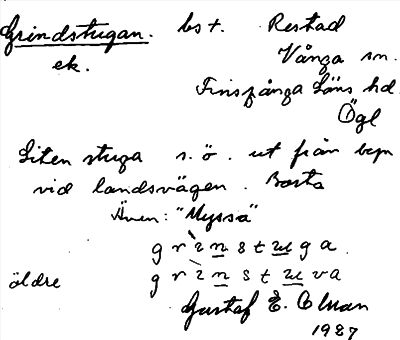 Grindstugan. bst. Restad
ek. Vånga sn.
Finspånga Läns hd.
Ögl
Liten stuga s.ö. ut från byn
vid landsvägen. Borta
Även: "Myssä"
grìnstuga
äldre grìnstuva
Gustaf E. Elman
1987